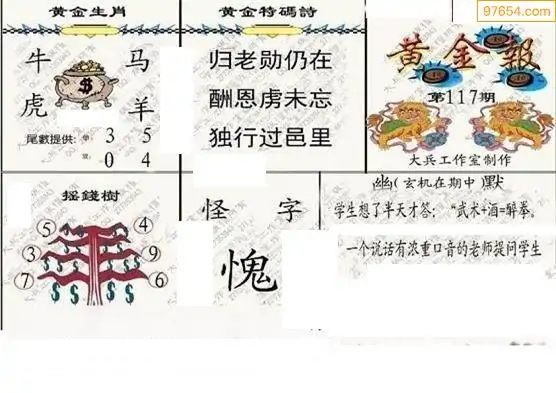 97654.com
黄金生肖
牛 马
虎 羊
尾數提供: 單: 3 5
雙: 0 4
黄金特碼詩
归老勋仍在
酬恩虏未忘
独行过邑里
黄金報
第117期
大兵工作室制作
摇錢樹
5 4
3 9
7 6
怪 字
愧
幽(玄机在期中)默
学生想了半天才答: “武术+酒=醉拳。
一个说话有浓重口音的老师提问学生